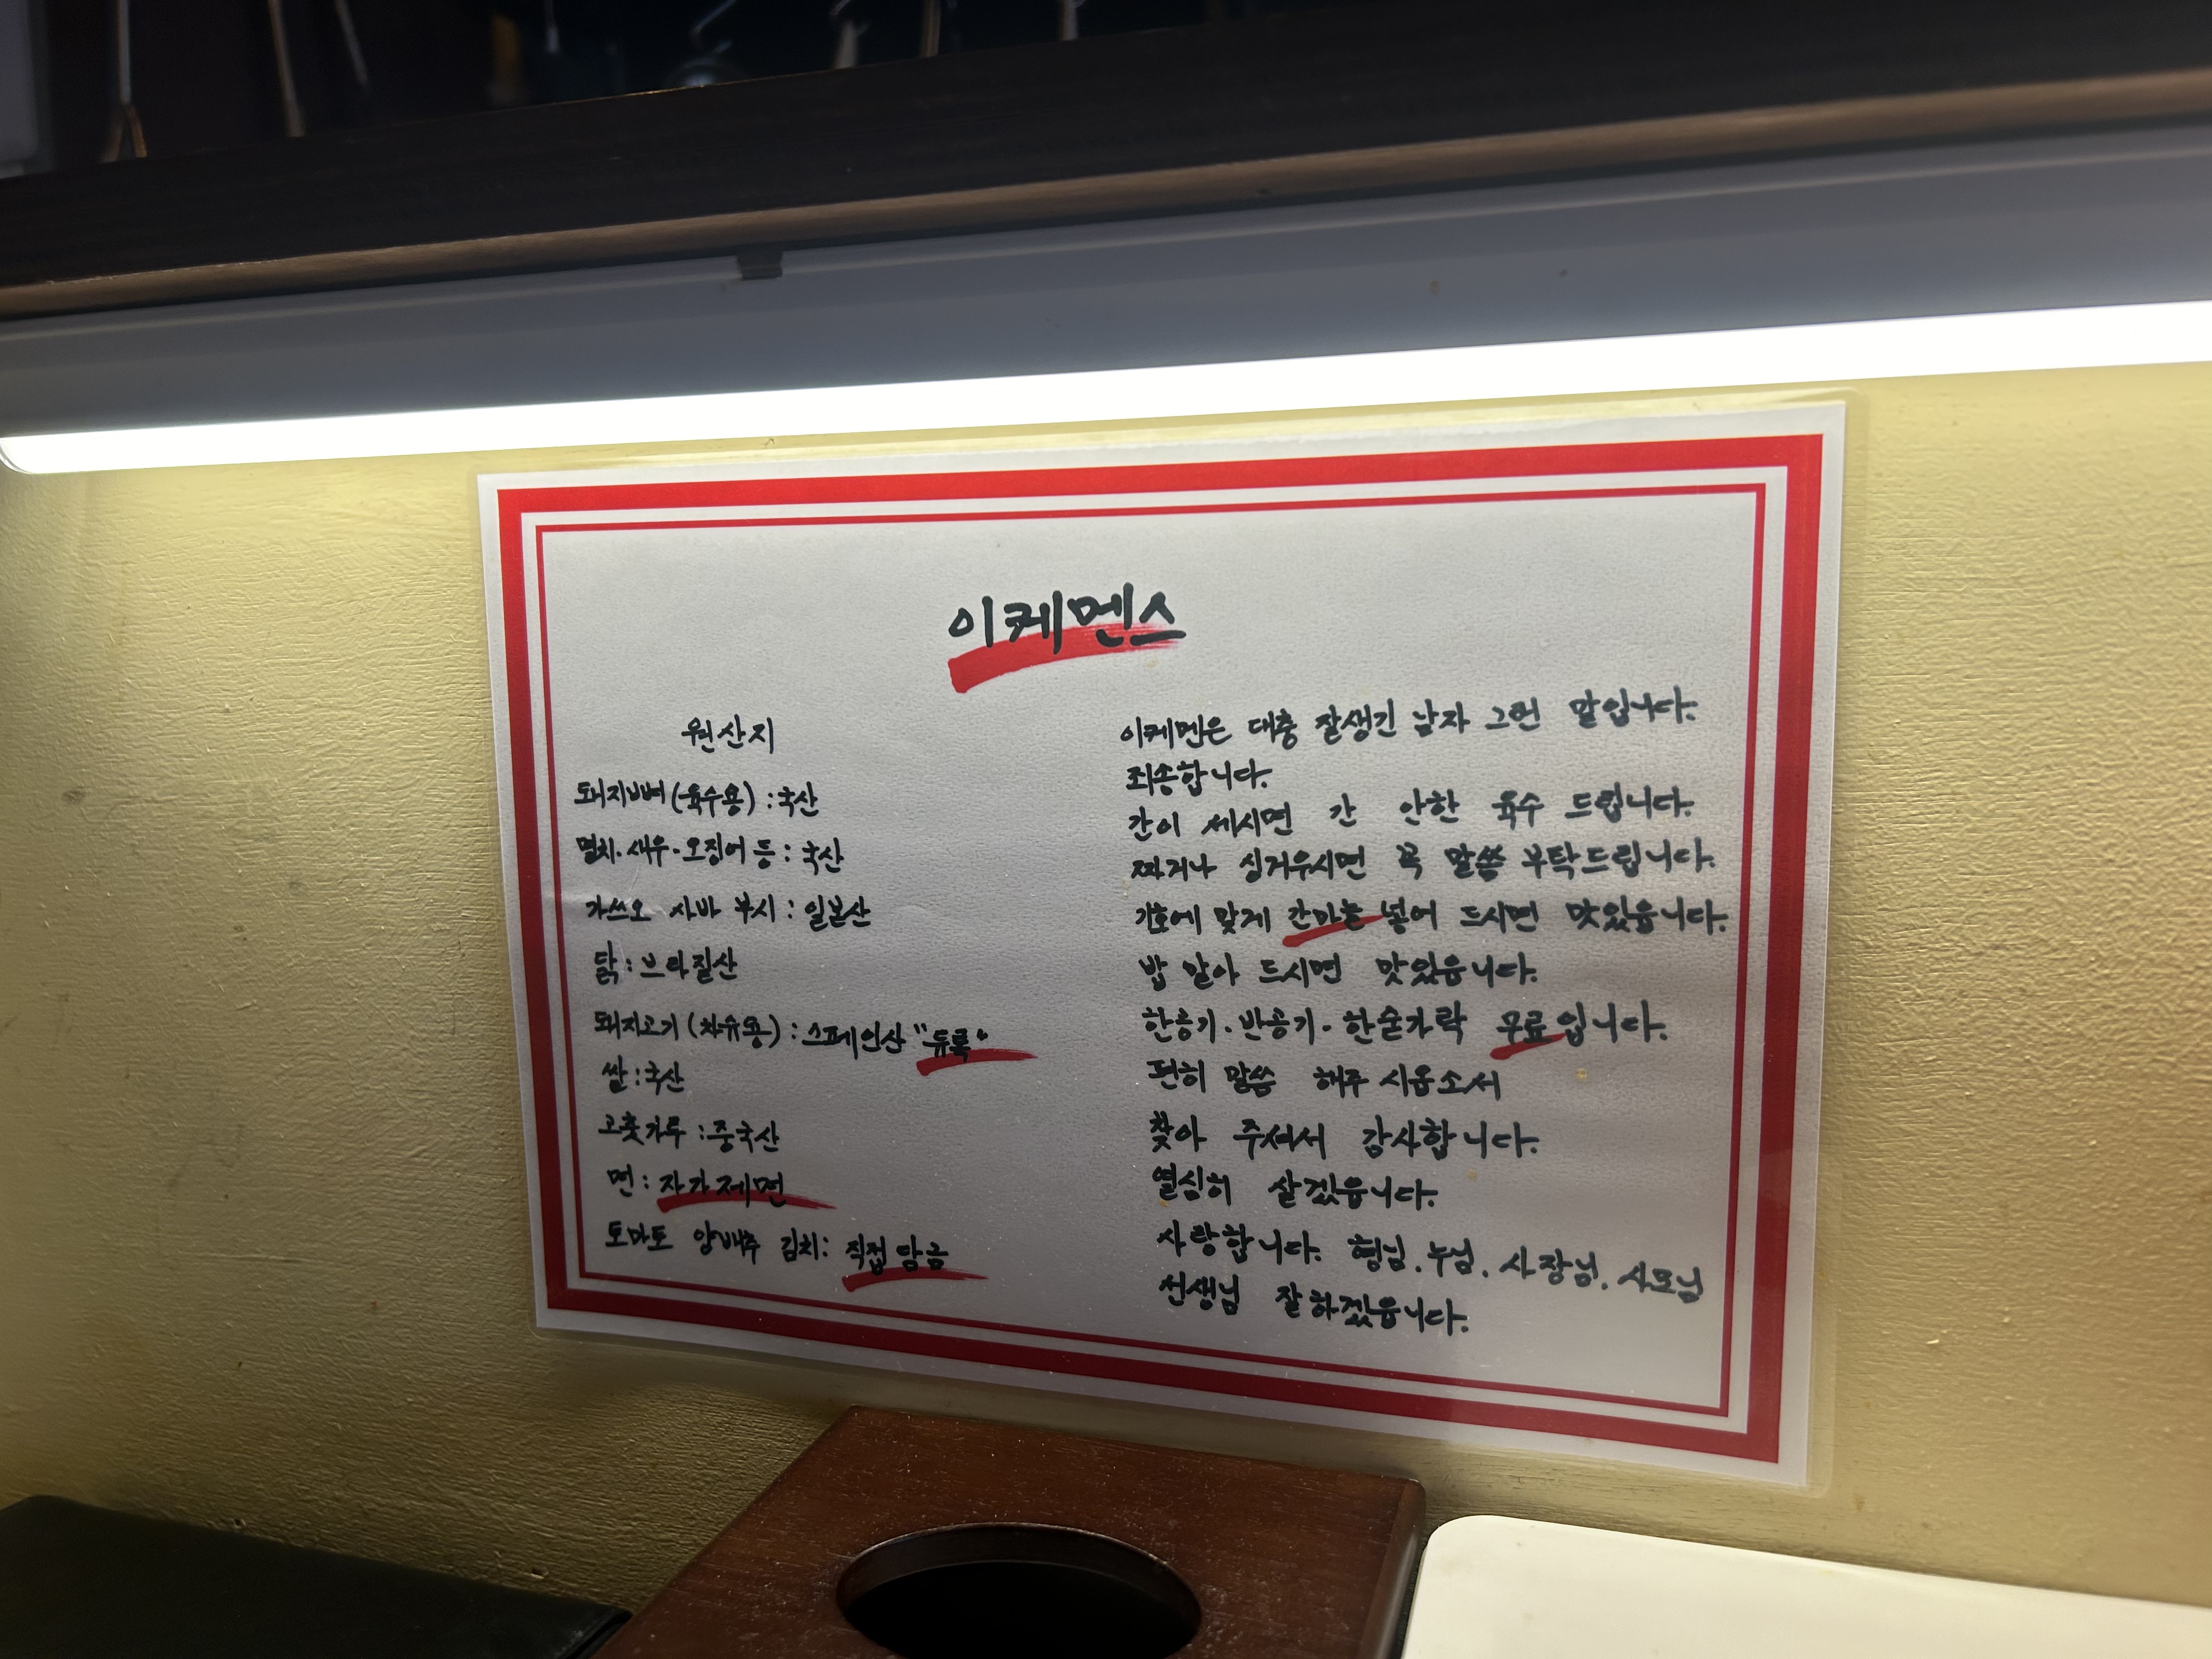 이케멘스
원산지
돼지뼈(육수용) : 국산
멸치·새우·오징어 등 : 국산
가쓰오 사바 부시 : 일본산
닭 : 브라질산
돼지고기(차슈용) : 스페인산 "듀록"
쌀 : 국산
고춧가루 : 중국산
면 : 자가제면
토마토 양배추 김치 : 직접 담금
이케멘은 대충 잘생긴 남자 그런 말입니다.
죄송합니다.
간이 세시면 간 안한 육수 드립니다.
짜거나 싱거우시면 꼭 말씀 부탁드립니다.
기호에 맞게 간마늘 넣어 드시면 맛있읍니다.
밥 말아 드시면 맛있읍니다.
한공기·반공기·한숟가락 무료입니다.
편히 말씀 해주시옵소서
찾아 주셔서 감사합니다.
열심히 살겠읍니다.
사랑합니다. 형님, 누님, 사장님, 사모님
선생님 잘하겠읍니다.